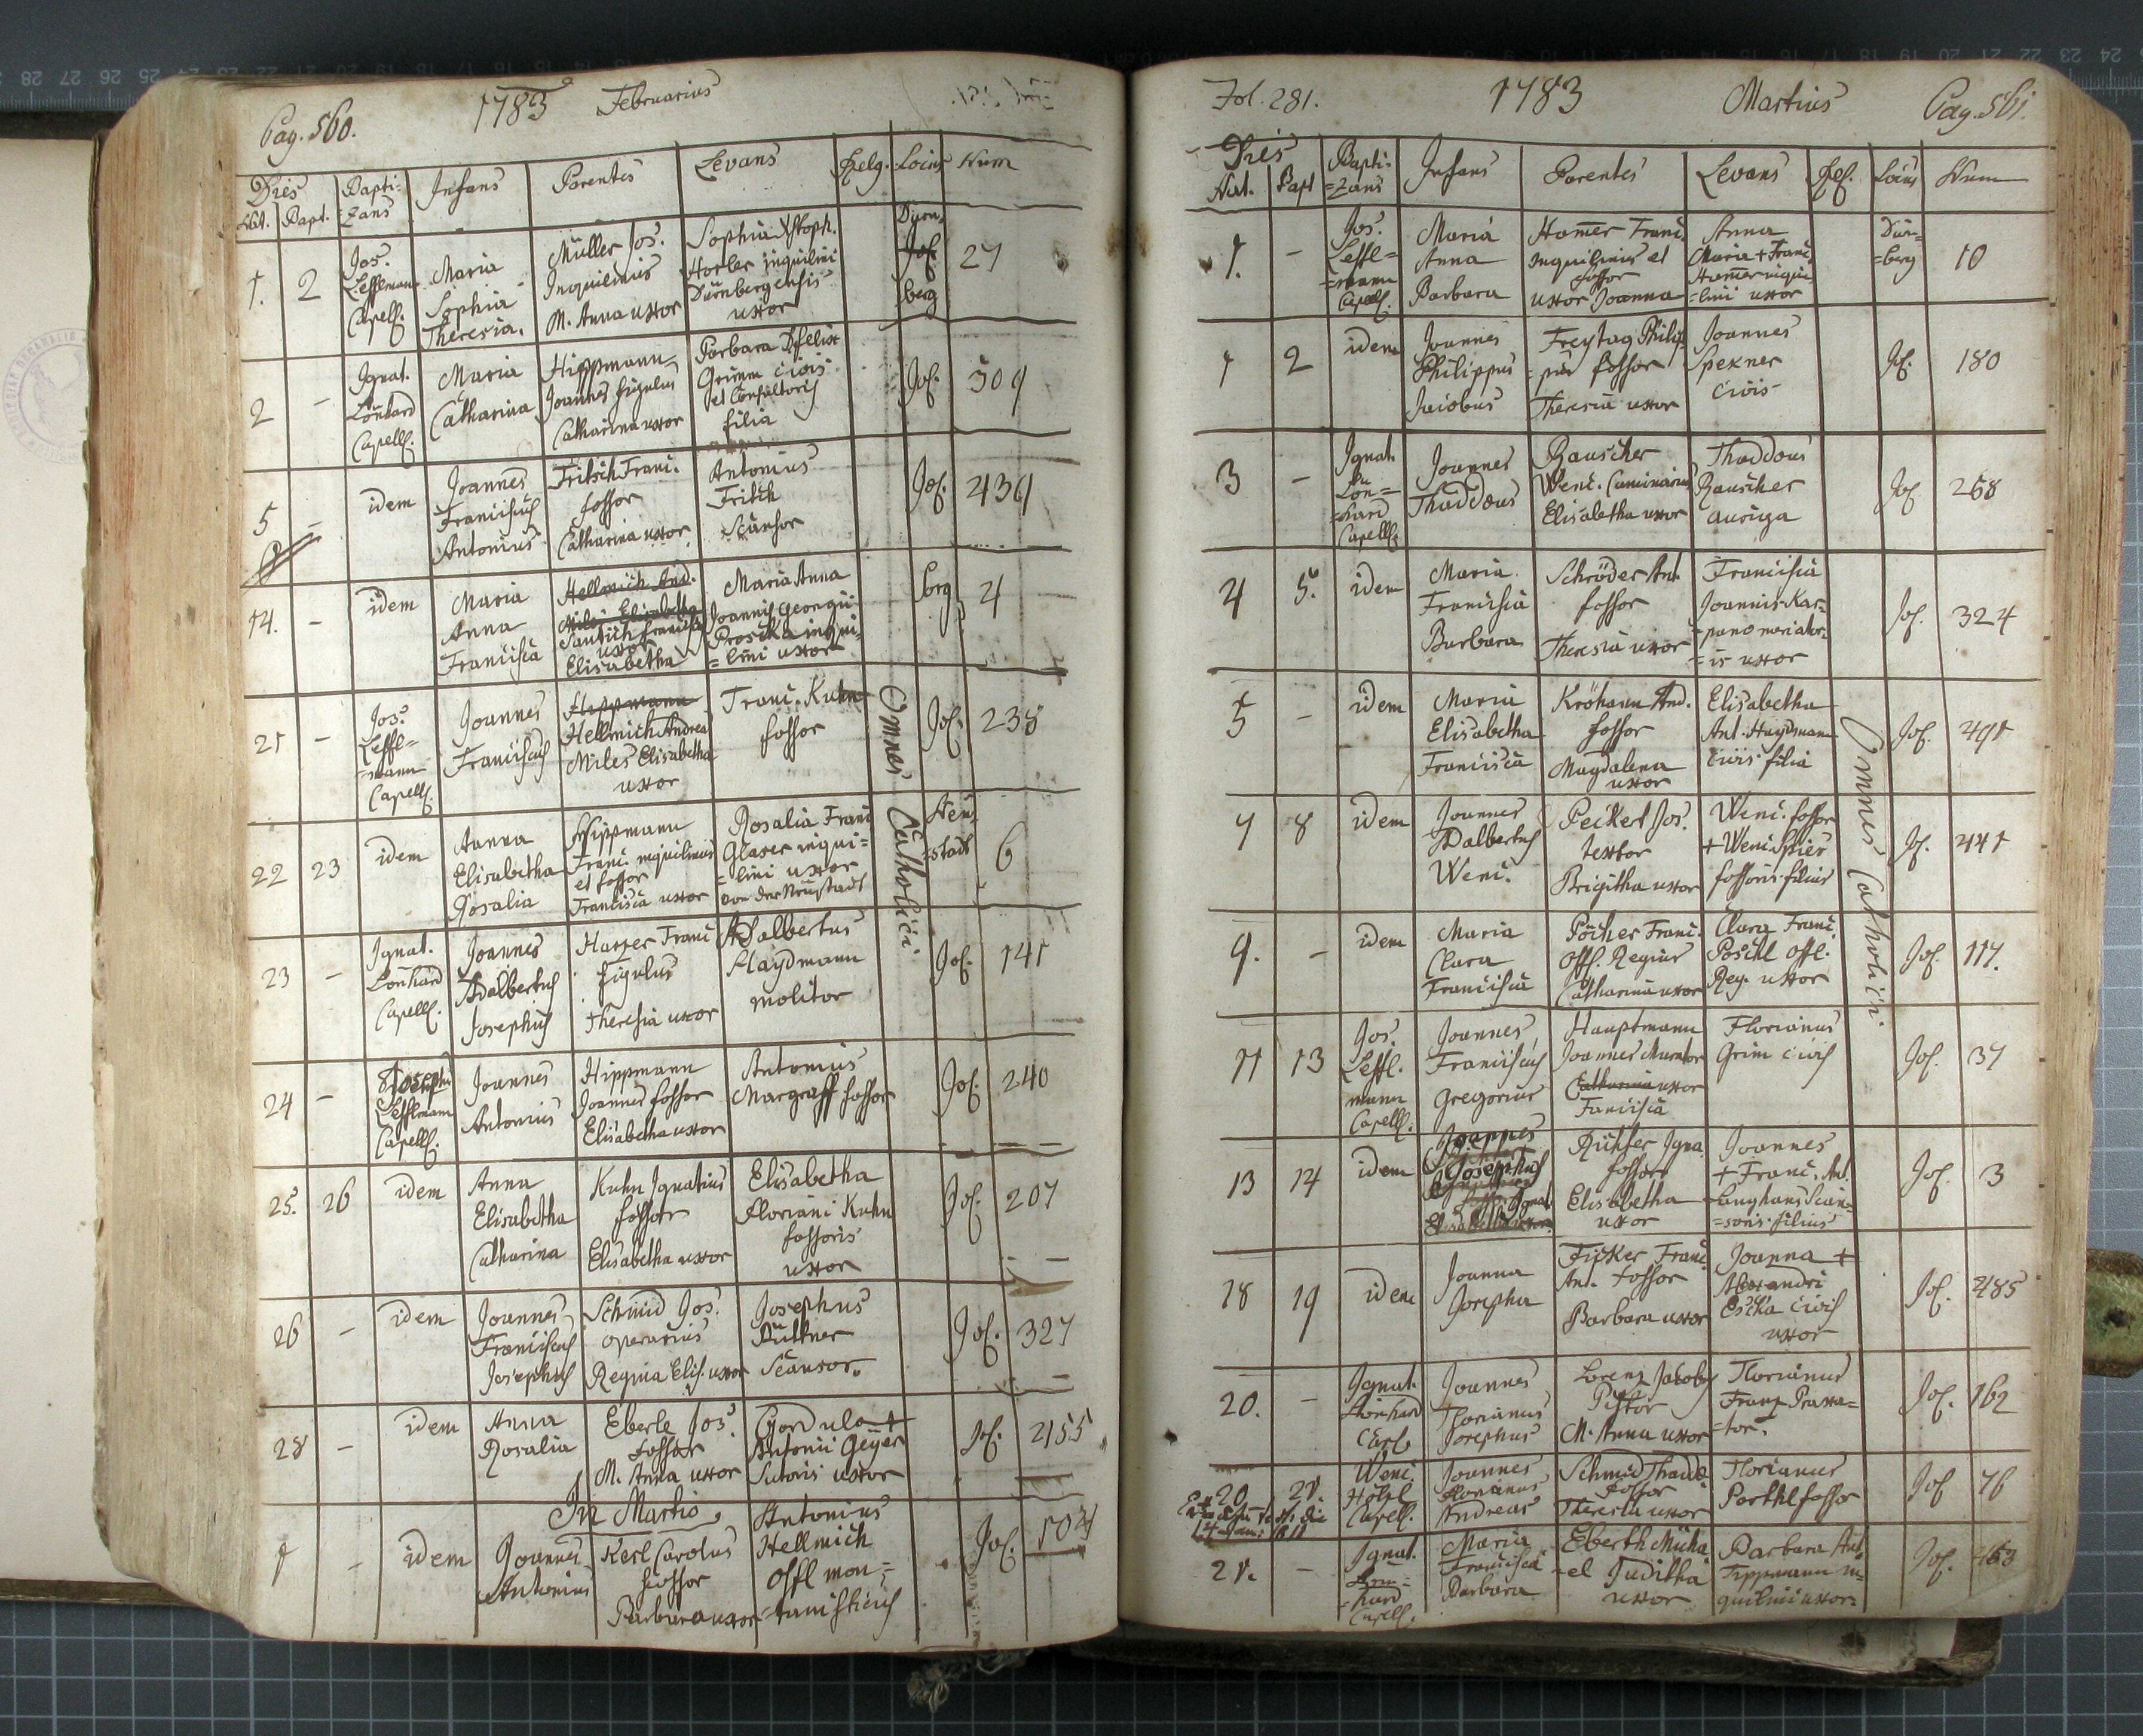 Pag. 560.
1783
Februarius
Dies
Nat. Bapt.
Bapti-
=zans
Infans
Parentes
Levans
Relig.
Locus
Num
1. 2
Jos.
Lefflmann
Capell.
Maria
Sophia
Theresia.
Müller Jos.
Inquilinus
M. Anna uxor
Sophia Xstoph.
Horler inquilini
Dürnbergensis
uxor
Dürn-
Jos.
berg
27
2 -
Ignat.
Lönhard
Capell.
Maria
Catharina
Hippmann
Joannes figulus
Catharina uxor
Barbara Felix
Grimm civis
et Consultoris
filia
Jos.
309
5 -
idem
Joannes
Franciscus
Antonius
Fritsch Franc.
fossor
Catharina uxor
Antonius
Fritsch
Scansor
Jos.
439
14. -
idem
Maria
Anna
Francisca
Hellmich And.
Miles Elisabetha
uxor
Elisabetha
Maria Anna
Joannis Georgii
Prosicka inqui-
=lini uxor
Sorg
4
21 -
Jos.
Leffl=
=mann
Capell.
Joannes
Franciscus
Hippmann
Hellmich Andrea
Miles Elisabetha
uxor
Franc. Kuhn
fossor
Jos.
238
22 23
idem
Anna
Elisabetha
Rosalia
Hippmann
Franc. inquilinus
et fossor
Francisca uxor
Rosalia Franc
Glaser inqui=
=lini uxor
von der Neustadt
Neu-
=stadt
6
Omnes Catholici
23 -
Ignat.
Lönhard
Capell.
Joannes
Adalbertus
Josephus
Harrer Franc
figulus
Theresia uxor
Adalbertus
Haydmann
molitor
Jos.
141
24 -
Josephus
Lefflmann
Capell.
Joannes
Antonius
Hippmann
Joannes fossor
Elisabetha uxor
Antonius
Margraff fossor
Jos.
240
25. 26
idem
Anna
Elisabetha
Catharina
Kuhn Ignatius
fossor
Elisabetha uxor
Elisabetha
Floriani Kuhn
fossoris
uxor
Jos.
207
26 -
idem
Joannes
Franciscus
Josephus
Schmid Jos.
operarius
Regina Elis. uxor
Josephus
Büttner
Scansor.
Jos.
327
28 -
idem
Anna
Rosalia
Eberle Jos.
fossor
M. Anna uxor
Cordula +
Antonii Geyer
Sutoris uxor
Jos.
2155
In Martio,
1 -
idem
Joannes
Antonius
Kerl Carolus
fossor
Barbara uxor
Antonius
Hellmich
Offl mon=
=tanisticus
Jos.
104
Fol. 281.
1783
Martius
Pag. 561.
Dies
Nat. Bapt
Bapti-
=zans
Infans
Parentes
Levans
Rel.
Locus
Num
1. -
Jos.
Leffl=
=mann
Capell.
Maria
Anna
Barbara
Ham̅er Franc.
Inquilinus et
fossor
uxor Joanna
Anna
Maria + Franc.
Ham̅er inqui
=lini uxor
Dürn=
=berg
10
1 2
idem
Joannes
Philippus
Jacobus
Freytag Philip
=pus fossor
Theresia uxor
Joannes
Spexner
civis
Jos.
180
3 -
Ignat.
Lön=
=hard
Capell.
Joannes
Thaddäus
Rauscher
Wenc. Caminarius
Elisabetha uxor
Thaddäus
Rauscher
auriga
Jos.
268
4 5.
idem
Maria
Francisca
Barbara
Schröder Ant.
fossor
Theresia uxor
Francisca
Joannis Kar=
=is uxor
Jos.
324
5 -
idem
Maria
Elisabetha
Francisca
Kröhann And.
fossor
Magdalena
uxor
Elisabetha
Ant. Haydmann
civis filia
Jos.
491
Omnes Catholici
7 8
idem
Joannes
Adalbertus
Wenc.
Peikert Jos.
textor
Brigitha uxor
Wenc. fossor
+ Wenc. Spier
fossoris filius
Jos.
441
9. -
idem
Maria
Clara
Francisca
Pöcher Franc.
Off. Regius
Catharina uxor
Clara Franc.
Pöschl Offl.
Reg. uxor
Jos.
117.
11 13
Jos.
Leffl.
mann
Capell.
Joannes
Franciscus
Gregorius
Hauptmann
Joannes Murator
Catharina uxor
Francisca
Florianus
Grim civis
Jos.
37
13 14
idem
Joannes
Josephus
Elisabetha uxor
Richter Igna.
fossor
Elisabetha
uxor
Joannes
+ Franc. Ant.
Langhans Scan=
=soris filius
Jos.
3
18 19
idem
Joanna
Josepha
Ficker Franc
Ant. Fossor
Barbara uxor
Joanna +
Alexandri
Escha civis
uxor
Jos.
485
20. -
Ignat.
Lönhard
Cap.
Joannes
Florianus
Josephus
Lorenz Jacobus
Pistor
M. Anna uxor
Florianus
Franz Praxa=
=tor.
Jos.
162
20 21.
Wenc.
Hölzl
Capell.
Joannes
Florianus
Andreas
Schmid Thadd
Fossor
Theresia uxor
Florianus
Porthl fossor
Jos
76
21. -
Ignat.
Lön=
=hard
Capell.
Maria
Francisca
Barbara
Eberth Micha
=el Juditha
uxor
Barbara Ant.
Tippmann in=
quilini uxor
Jos.
463